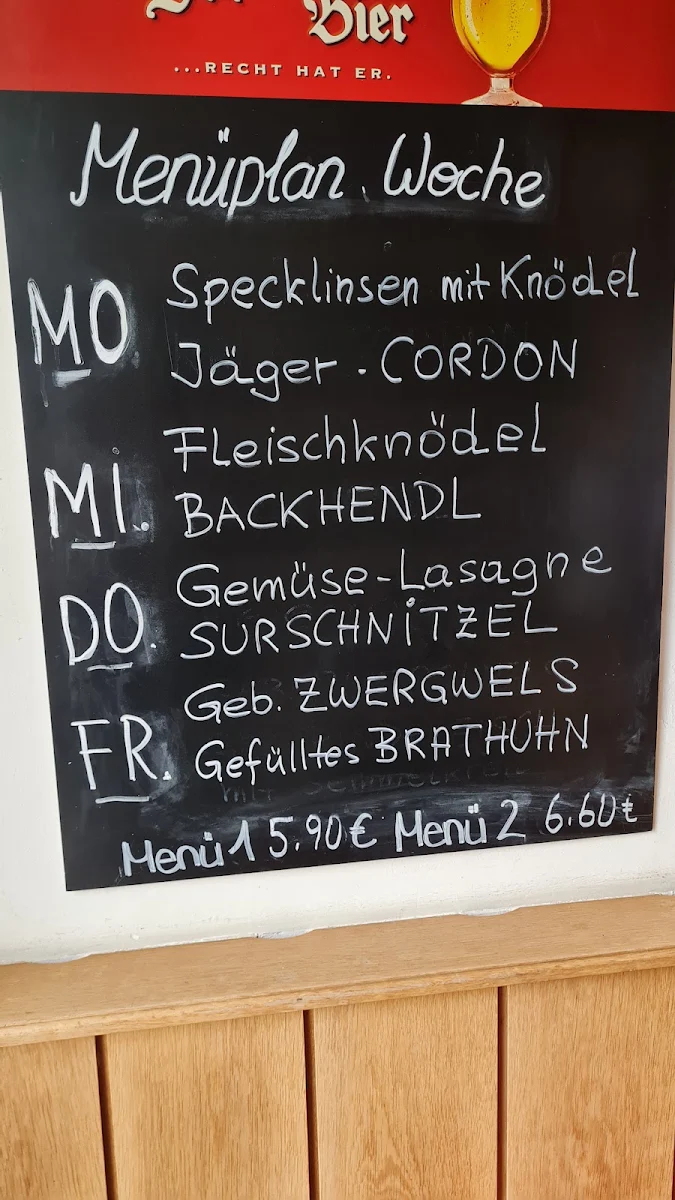 Bier
...RECHT HAT ER.
Menüplan. Woche
MO Specklinsen mit Knödel
Jäger - CORDON
MI. Fleischknödel
BACKHENDL
DO. Gemüse-Lasagne
SURSCHNITZEL
FR. Geb. ZWERGWELS
Gefülltes BRATHUHN
Menü 1 5.90€ Menü 2 6.60€